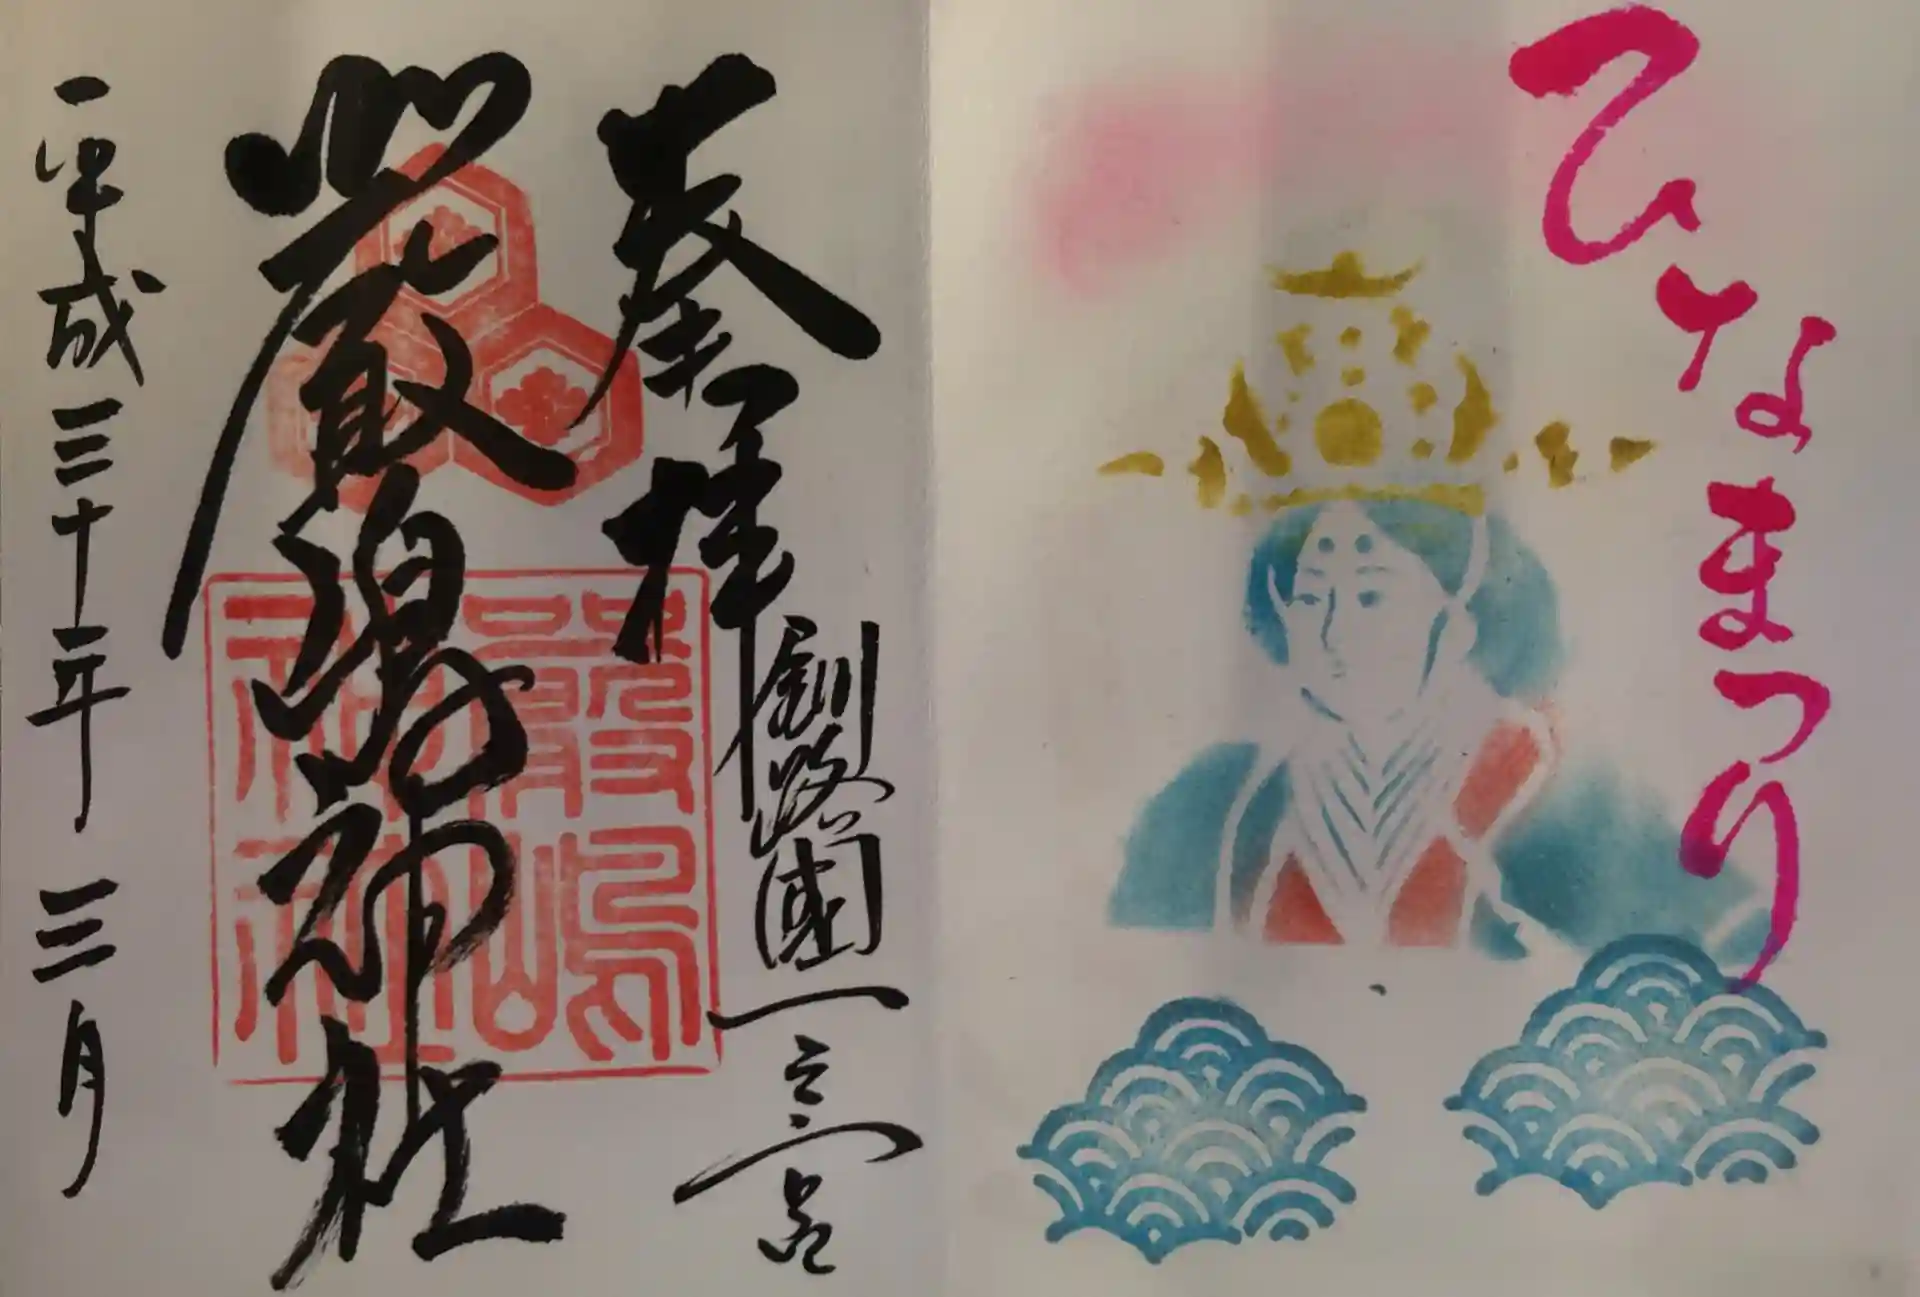 ひなまつり
奉拝
釧路國一之宮
厳島神社
嚴嶋神社
平成三十年三月